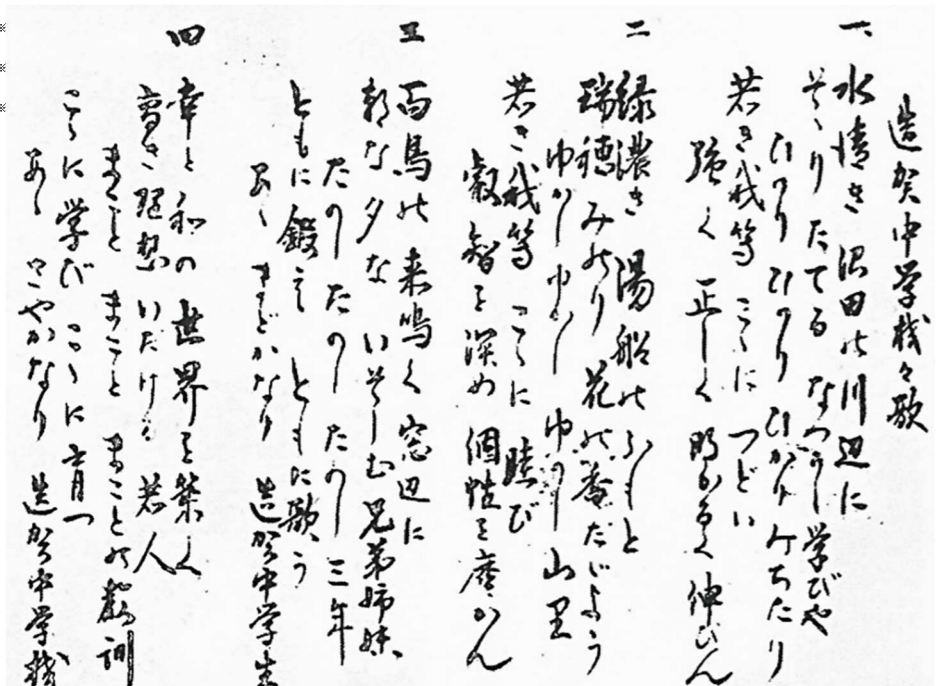 造賀中学校々歌
一 水清き沼田の川辺に
そゝりたてる なつかし学びや
ひかり ひかり ひかりみちたり
若き我等 こゝに つどい
強く 正しく 明かるく 伸びん
二 緑濃き 湯船のふもと
瑞穂みのり 花の香たゞよう
ゆかし ゆかし ゆかし 山里
若き我等 こゝに 睦び
叡智を深め 個性を磨かん
三 百鳥の 来鳴く 窓辺に
朝な夕な いそしむ 兄弟姉妹
たのし たのし たのし 三年
ともに 鍛え ともに 歌う
あゝ まどかなり 造賀中学生
四 幸と 和の 世界を 築く
高き 理想 いだける 若人
まこと まこと まことの 教訓
こゝに 学び こゝに 育つ
あゝ さやかなり 造賀中学校